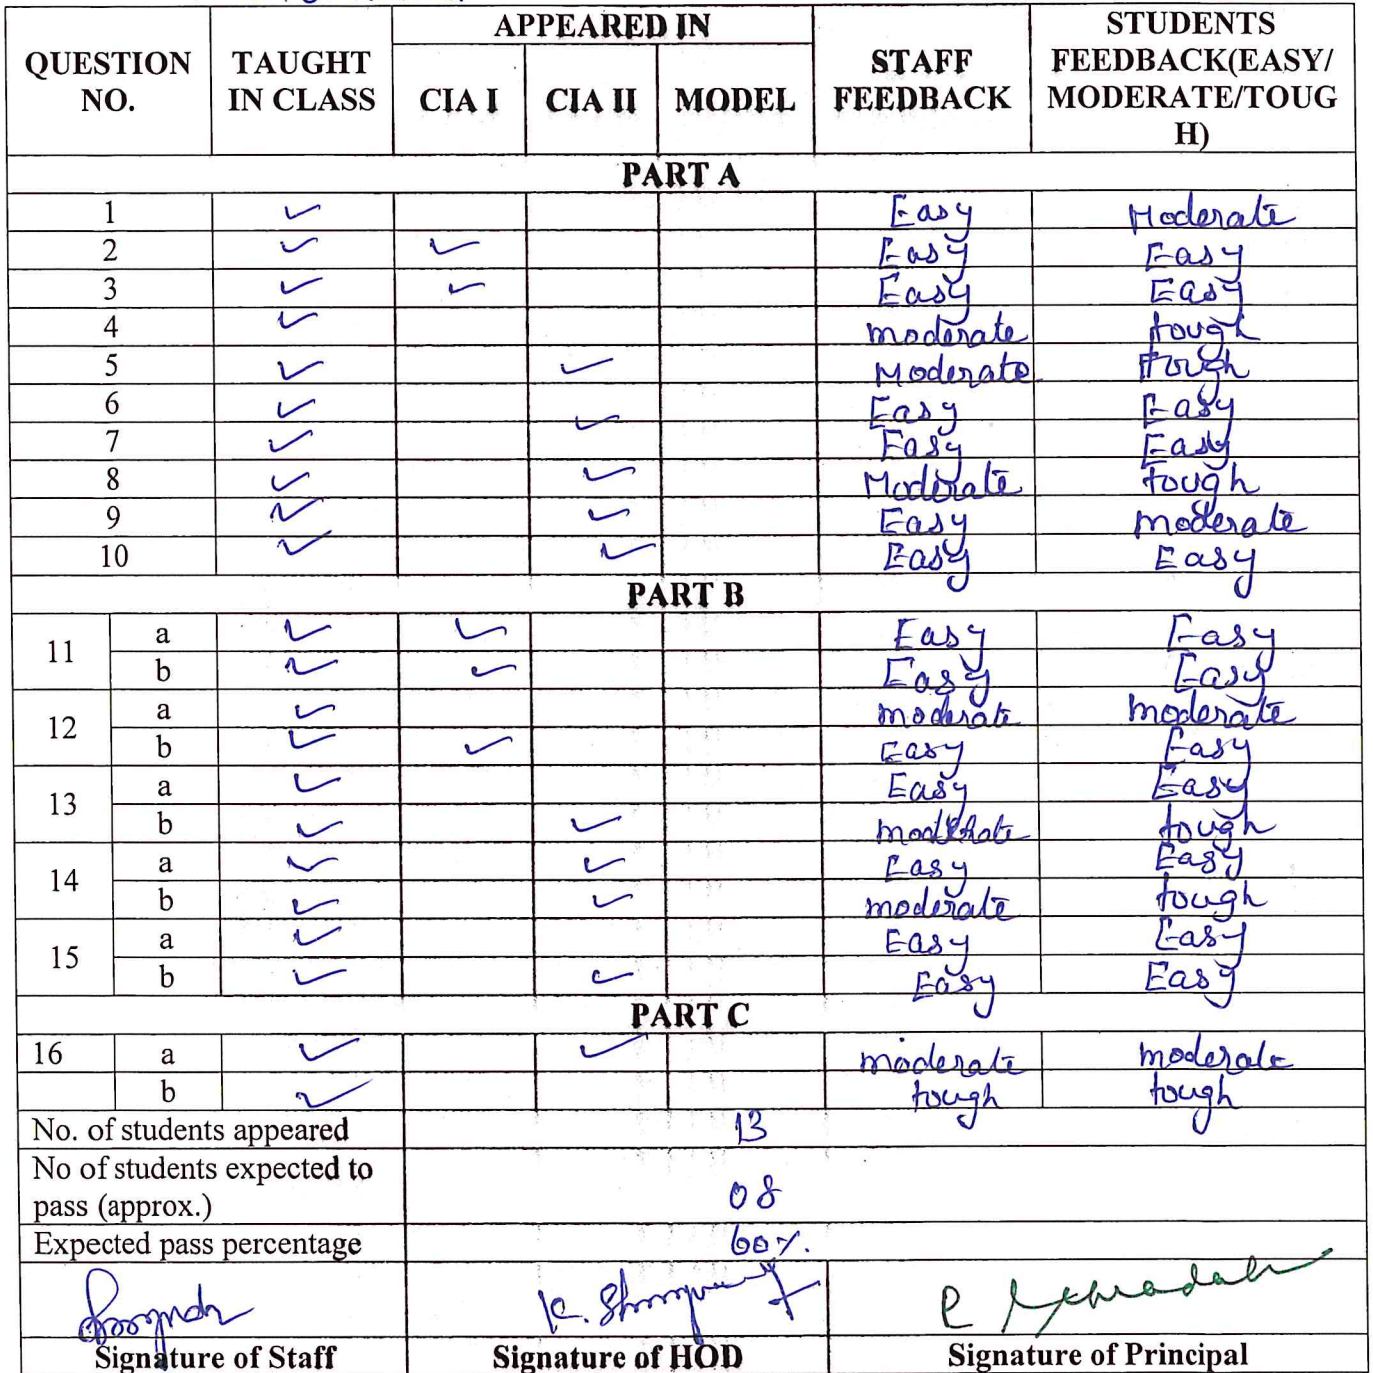 QUESTION NO. TAUGHT IN CLASS APPEARED IN STAFF FEEDBACK STUDENTS FEEDBACK(EASY/MODERATE/TOUGH)
CIA I CIA II MODEL
PART A
1 ✓ Easy Moderate
2 ✓ ✓ Easy Easy
3 ✓ ✓ Easy Easy
4 ✓ moderate tough
5 ✓ ✓ Moderate tough
6 ✓ ✓ Easy Easy
7 ✓ Easy Easy
8 ✓ ✓ Moderate tough
9 ✓ ✓ Easy moderate
10 ✓ ✓ Easy Easy
PART B
11 a ✓ ✓ Easy Easy
b ✓ ✓ Easy Easy
12 a ✓ moderate moderate
b ✓ ✓ Easy Easy
13 a ✓ Easy Easy
b ✓ ✓ moderate tough
14 a ✓ ✓ Easy Easy
b ✓ ✓ moderate tough
15 a ✓ Easy Easy
b ✓ ✓ Easy Easy
PART C
16 a ✓ ✓ moderate moderate
b ✓ tough tough
No. of students appeared 13
No of students expected to
pass (approx.) 08
Expected pass percentage 60%.
Signature of Staff Signature of HOD Signature of Principal